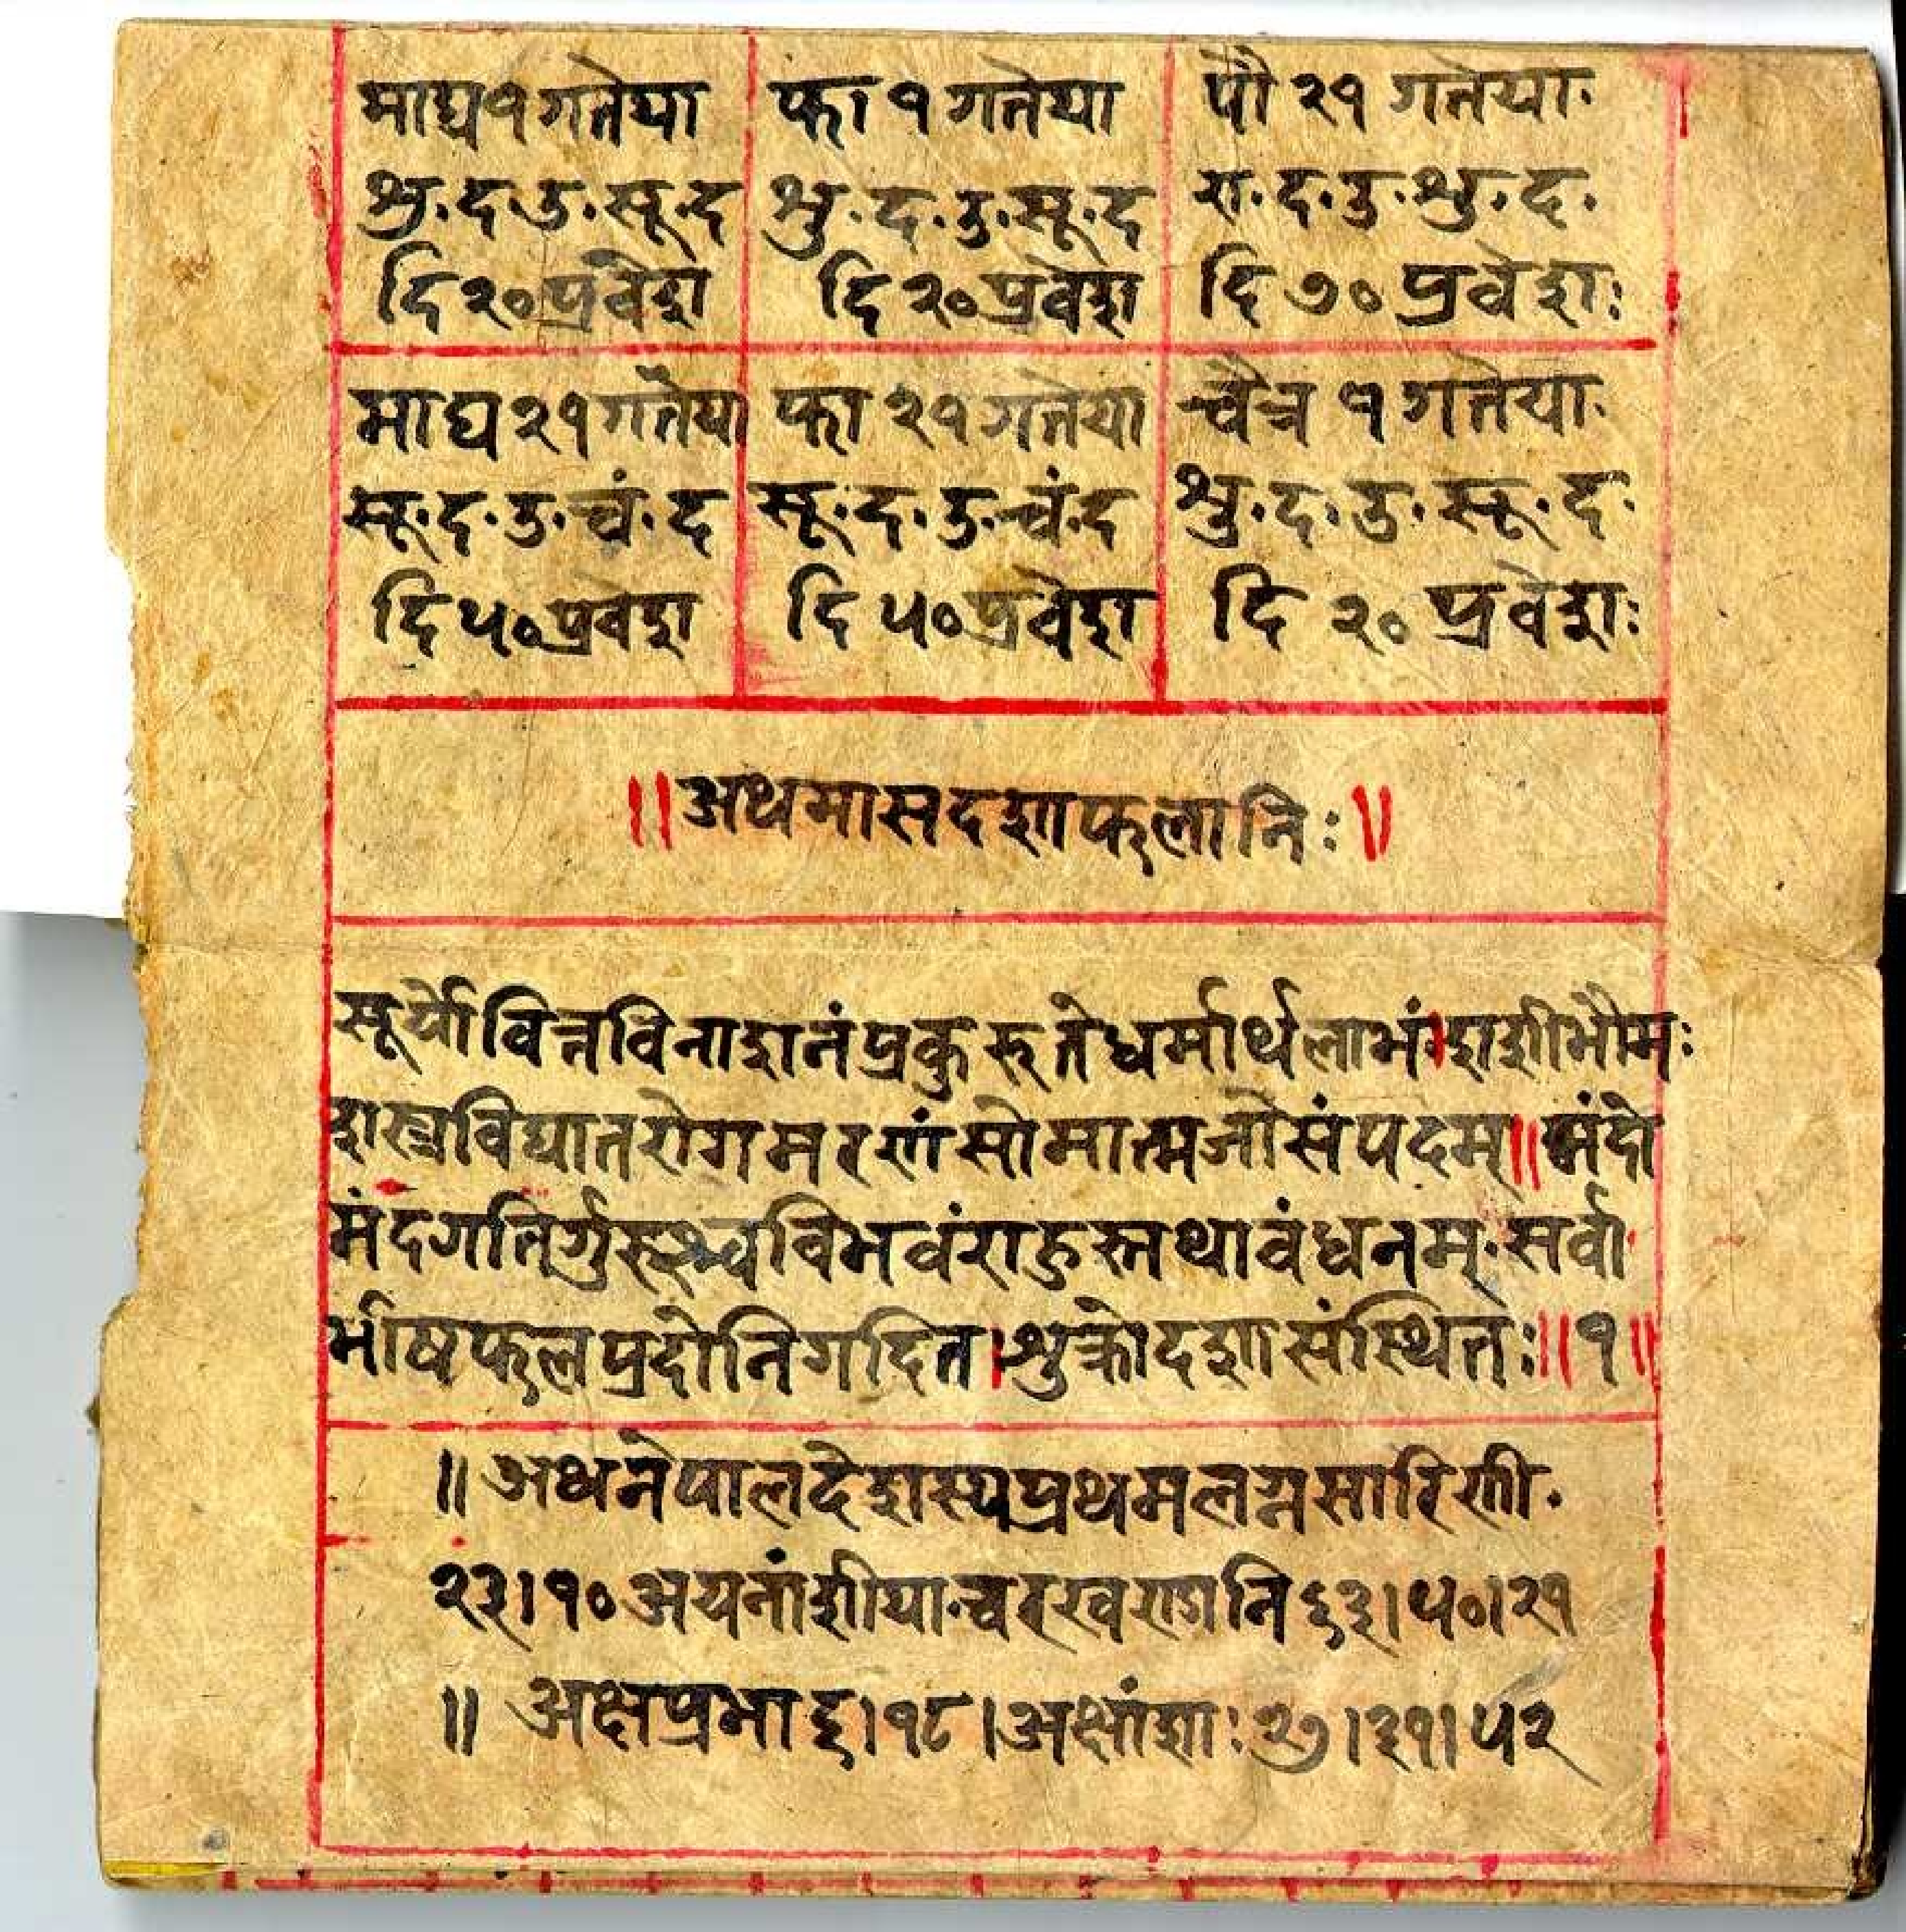 माघ १ गतेया
शु·द·उ·सू·द
दि २० प्रवेश
फा १ गतेया
शु·द·उ·सू·द
दि २० प्रवेश
पौ २१ गतेयाः
रा·द·उ·शु·द·
दि ७० प्रवेशः
माघ २१ गतेया
सू·द·उ·चं·द
दि ५० प्रवेश
फा २१ गतेया
सू·द·उ·चं·द
दि ५० प्रवेश
चैत्र १ गतेयाः
शु·द·उ·सू·द·
दि २० प्रवेशः
॥ अथमासदशाफलानिः ॥
सूर्यो वित्तविनाशनंप्रकुरुतेधर्मार्थलाभं।शशीभौमः
शस्त्रविघातरोगमरणंसोमात्मजोसंपदम्॥ मंदो
मंदगतिर्गुरुश्चविभवंराहुस्तथावंधनम्·सर्वा
र्भाषफलप्रदोनिगदित।शुक्रोदशासंस्थितः॥१॥
॥ अथनेपालदेशस्यप्रथमलग्नसारिणी·
२३।१० अयनांशीयाचरखण्डानि ६३।५०।२१
॥ अक्षप्रभा ६।१८।अक्षांशाः २७।३१।५२